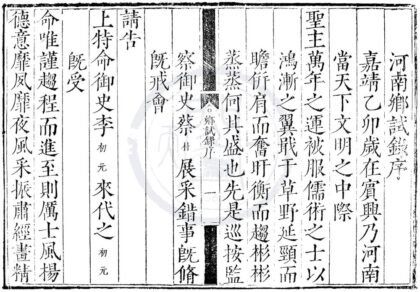 河南鄉試錄序
嘉靖乙卯歲在賓興乃河南
當天下文明之中際
聖主萬年之運被服儒術之士以
鴻漸之翼戢于草野延頸而
瞻衍肩而奮肝衡而趨彬彬
蒸蒸何其盛也先是巡按監
鄉試錄序 一
察御史蔡朴展采錯事旣脩
旣戒會
請告
上特命御史李初元來代之初元
旣受
命唯謹趨程而進至則厲士風揚
德意靡夙靡夜風采振肅經畫精